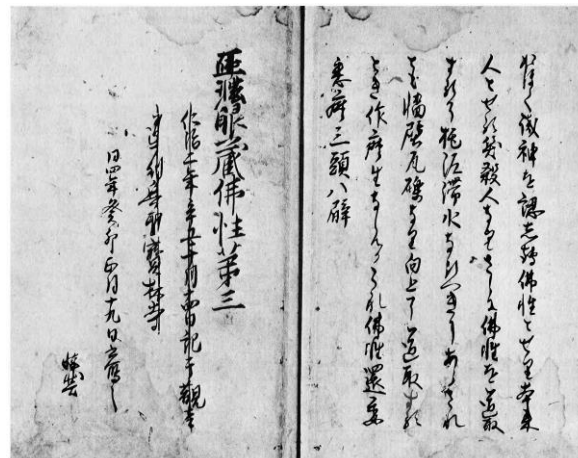 おほく識神を認して佛性とせり本来
人とせる笑殺人なりさらに佛性を道取
するに拕泥滞水なるへきにあらされ
とも牆壁瓦礫なり向上に道取する
とき作麼生ならんかこれ佛性還委
悉麼三頭八臂
正法眼藏佛性第三
仁治二年辛丑十月十四日記于觀音
導利興聖寶林寺
同四年癸卯正月十九日書寫之
懷弉